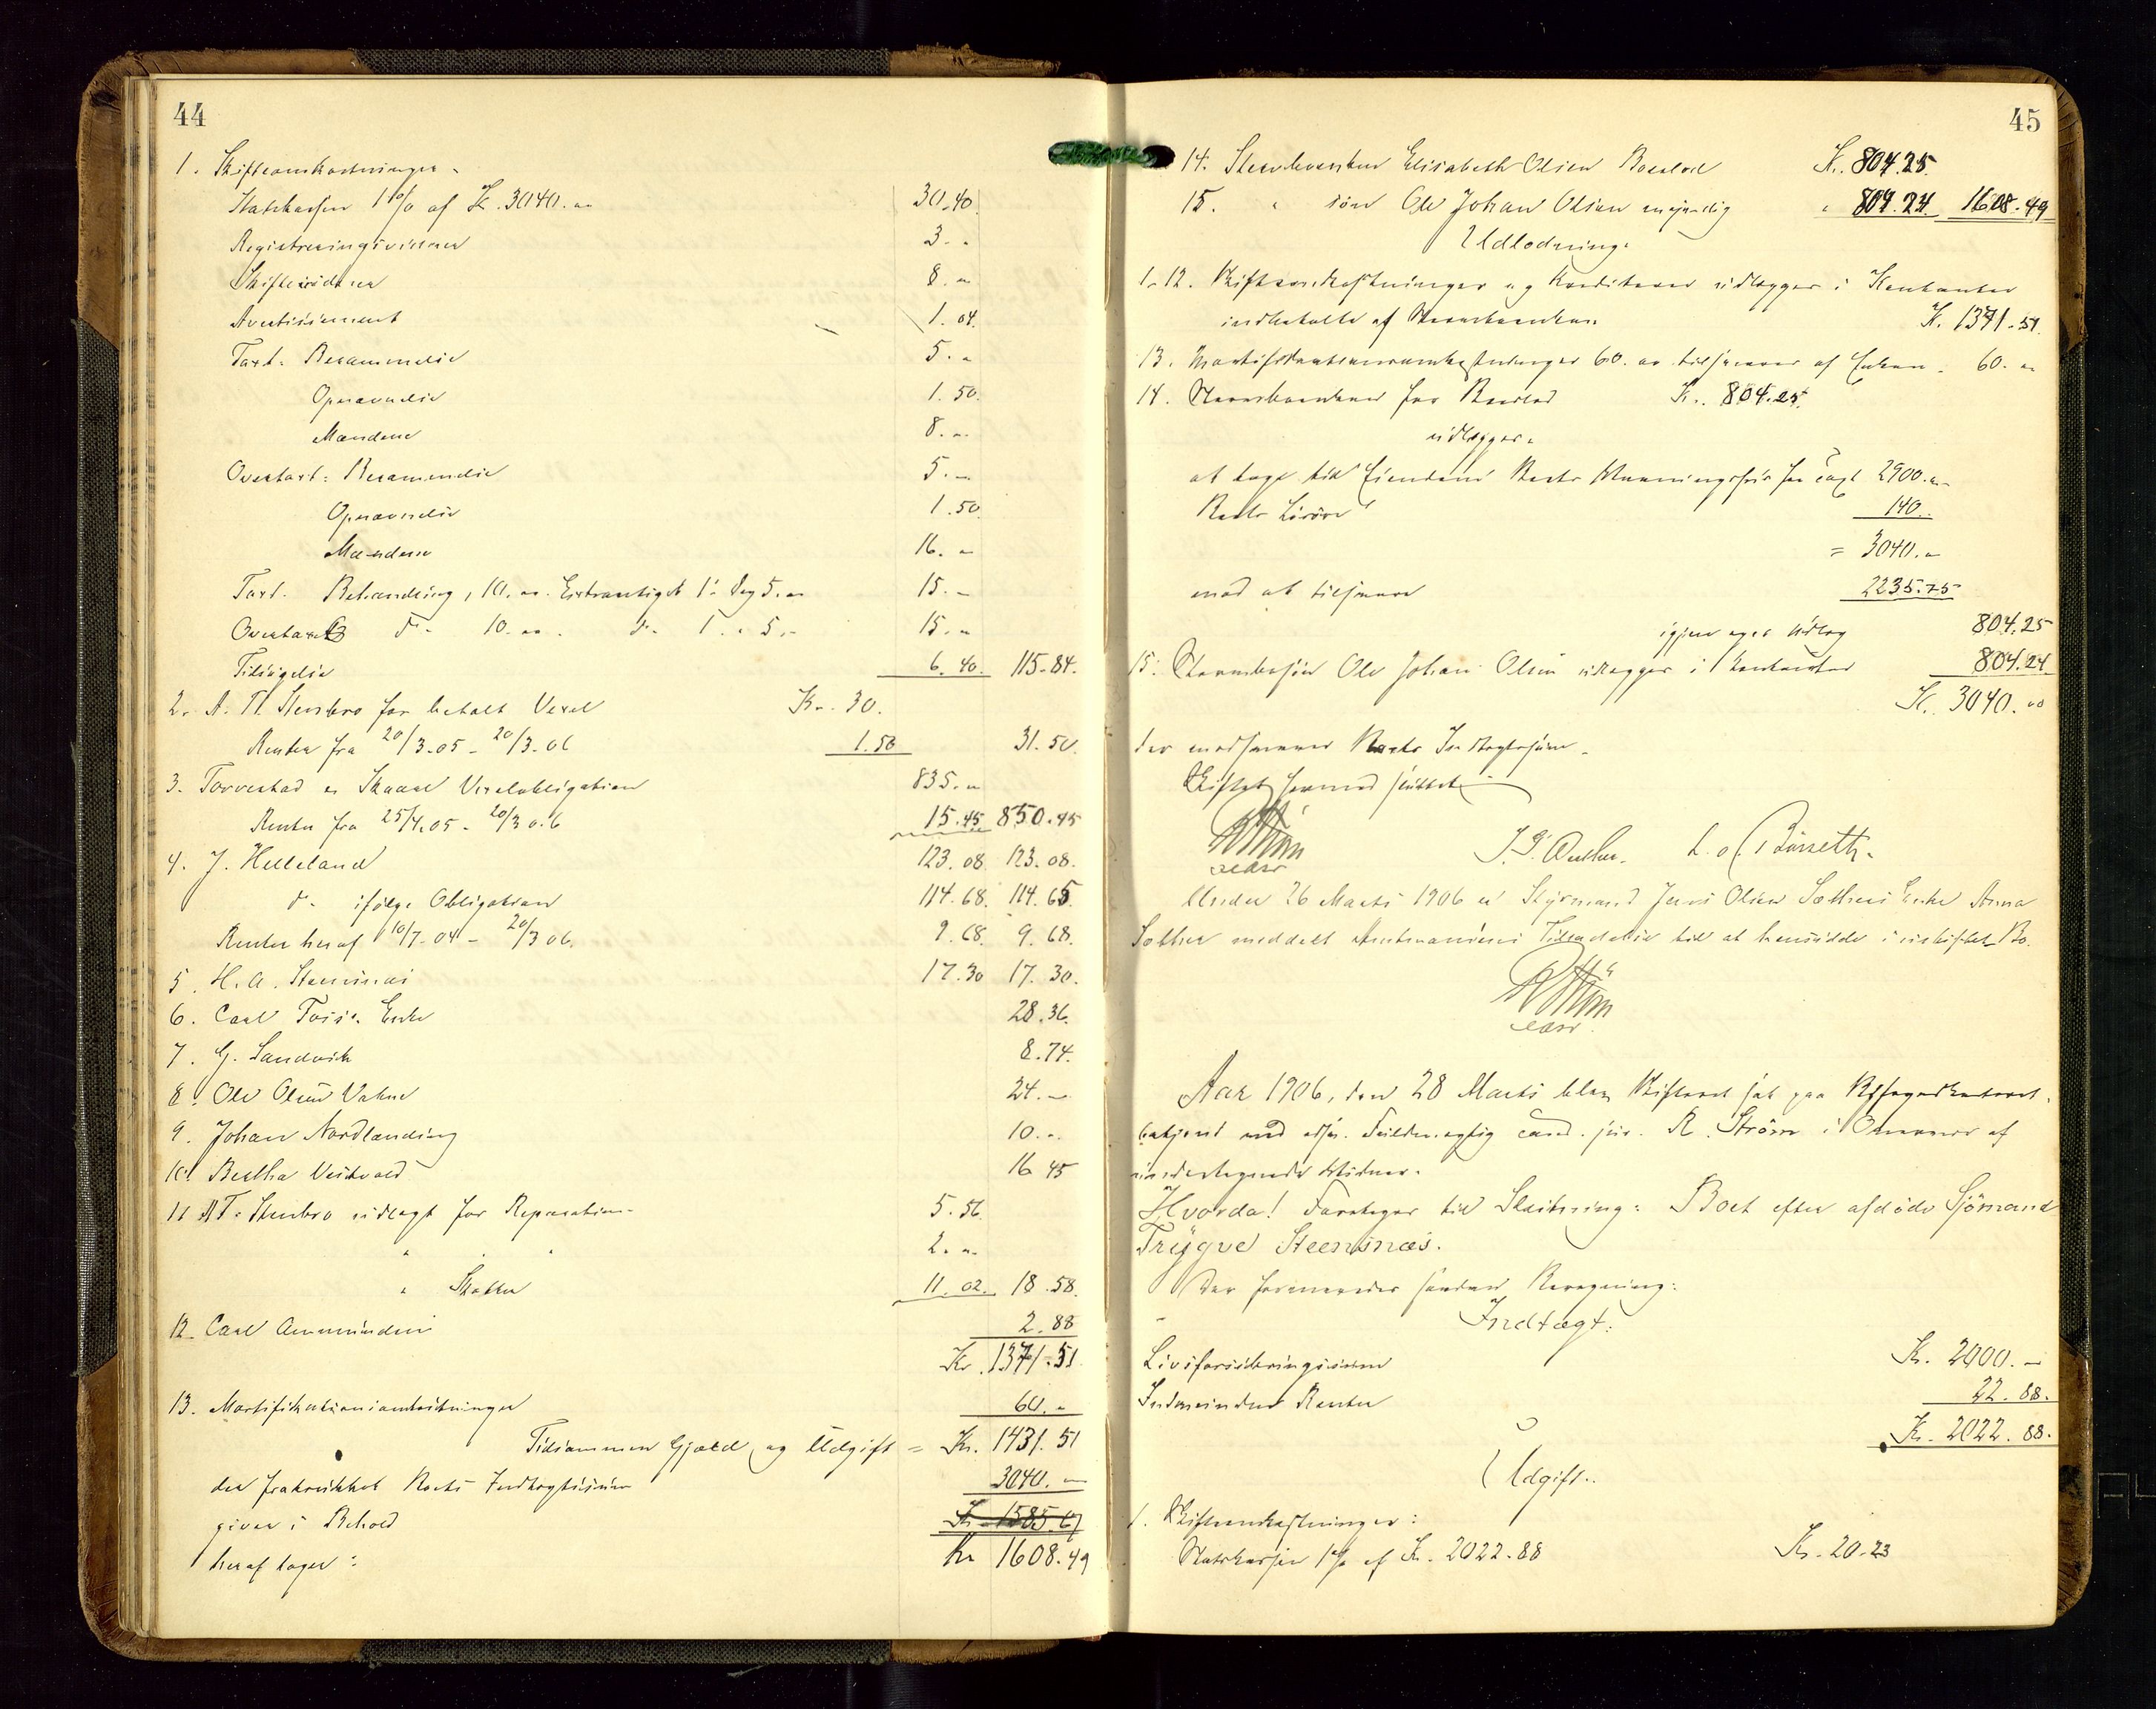 44
1. Skifteomkostninger.
Statskassen 1% af Kr. 3040.- 30.40.
Registreringsvidner 3.-
Skiftevidner 8.-
Avertissement 1.04.
Taxt: Berammelse 5.-
Opnævnelse 1.50.
Mændene 8.-
Overtaxt: Berammelse 5.-
Opnævnelse 1.50.
Mændene 16.-
Taxt. Behandling, 10.- Extrautigst 1 Dag 5.- 15.-
Overtaxt do 10.- do 1 " 5.- 15.-
Tilsigelse 6.40. 115.84.
2. A. Th. Stensbro for betalt Vexel Kr. 30.
Renter fra 20/3.05 - 20/3.06 1.50 31.50.
3. Torvestad og Skaare Vexelobligation 835.-
Renter fra 25/4.05 - 20/3 0.6 15.45 850.45
4. J. Helleland 123.08. 123.08.
do ifølge Obligation 114.68. 114.65.
Renter heraf 10/7-04 - 20/3 06. 9.68. 9.68.
5. H. A. Steensnæs 17.30 17.30.
6. Carl Enke 28.36.
7. G. Sandvik 8.74.
8. Ole Olsen Vakse 24.-
9. Johan Nordlanding 10.-
10. Bertha Vestvold 16 45
11 A T. Stensbro udlagt for Reparation 5.56.
" " " 2.-
" Skatter 11.02. 18.58.
12. Carl Ammundsen 2.88
Kr. 1371.51.
13. Mortifikationsomkostninger 60.-
Tilsammen Gjæld og Udgift = Kr. 1431.51
der fratrukket Boets Indtægtssum 3040.-
giver i Behold Kr. 1585.67
heraf tager: Kr 1608.49
45
14. Stervboenken Elisabeth Olsen Boeslod Kr. 804.25.
15. " søn Ole Johan Olsen umyndig " 804.24 1608.49
Udlodning.
1-12. Skifteomkostninger og Kreditorer udlægges i Kontanter
indbetalte af Stervboenken. Kr. 1371.51.
13. Mortifikationsomkostninger 60.- tilsvarer af Enken. 60.-
14. Stervboenken for Boeslod Kr. 804.25.
udlægges.
at tage hid Eiendom Boets for taxt 2900.-
Boets Løsøre 140.-
= 3040.-
mod at tilsvare 2235.75
igjen eget Udlæg 804.25
15. Stervbosøn Ole Johan Olsen udlægges i Kontanter 804.24
Kr. 3040.00
der modsvarer Boets Indtægtssum.
Skiftet hermed sluttet.
R Strøm
edsv
L. O. Børseth.
Under 26 Marts 1906 er Styrmand Jens Olsen Sæthers Enke Anna
Sæther meddelt Amtmandens Tilladelse til at hensidde i uskiftet Bo.
R Strøm
edsv.
Aar 1906, den 28 Marts blev Skifteret sat paa Byfogedkontoret,
betjent ved edsv. Fuldmægtig cand. jur. R. Strøm i Overvær af
undertegnede Vidner.
Hvorda! Foretoges til Slutning: Boet efter afdøde Sjömand
Trygve Steensnæs.
Der fremlagdes saadan Beregning:
Indtægt:
Livsforsikringssum Kr. 2000.-
Indvundne Renter 22.88.
Kr. 2022.88.
Udgift.
1. Skifteomkostninger:
Statskassen 1% af Kr. 2022.88 Kr. 20.23